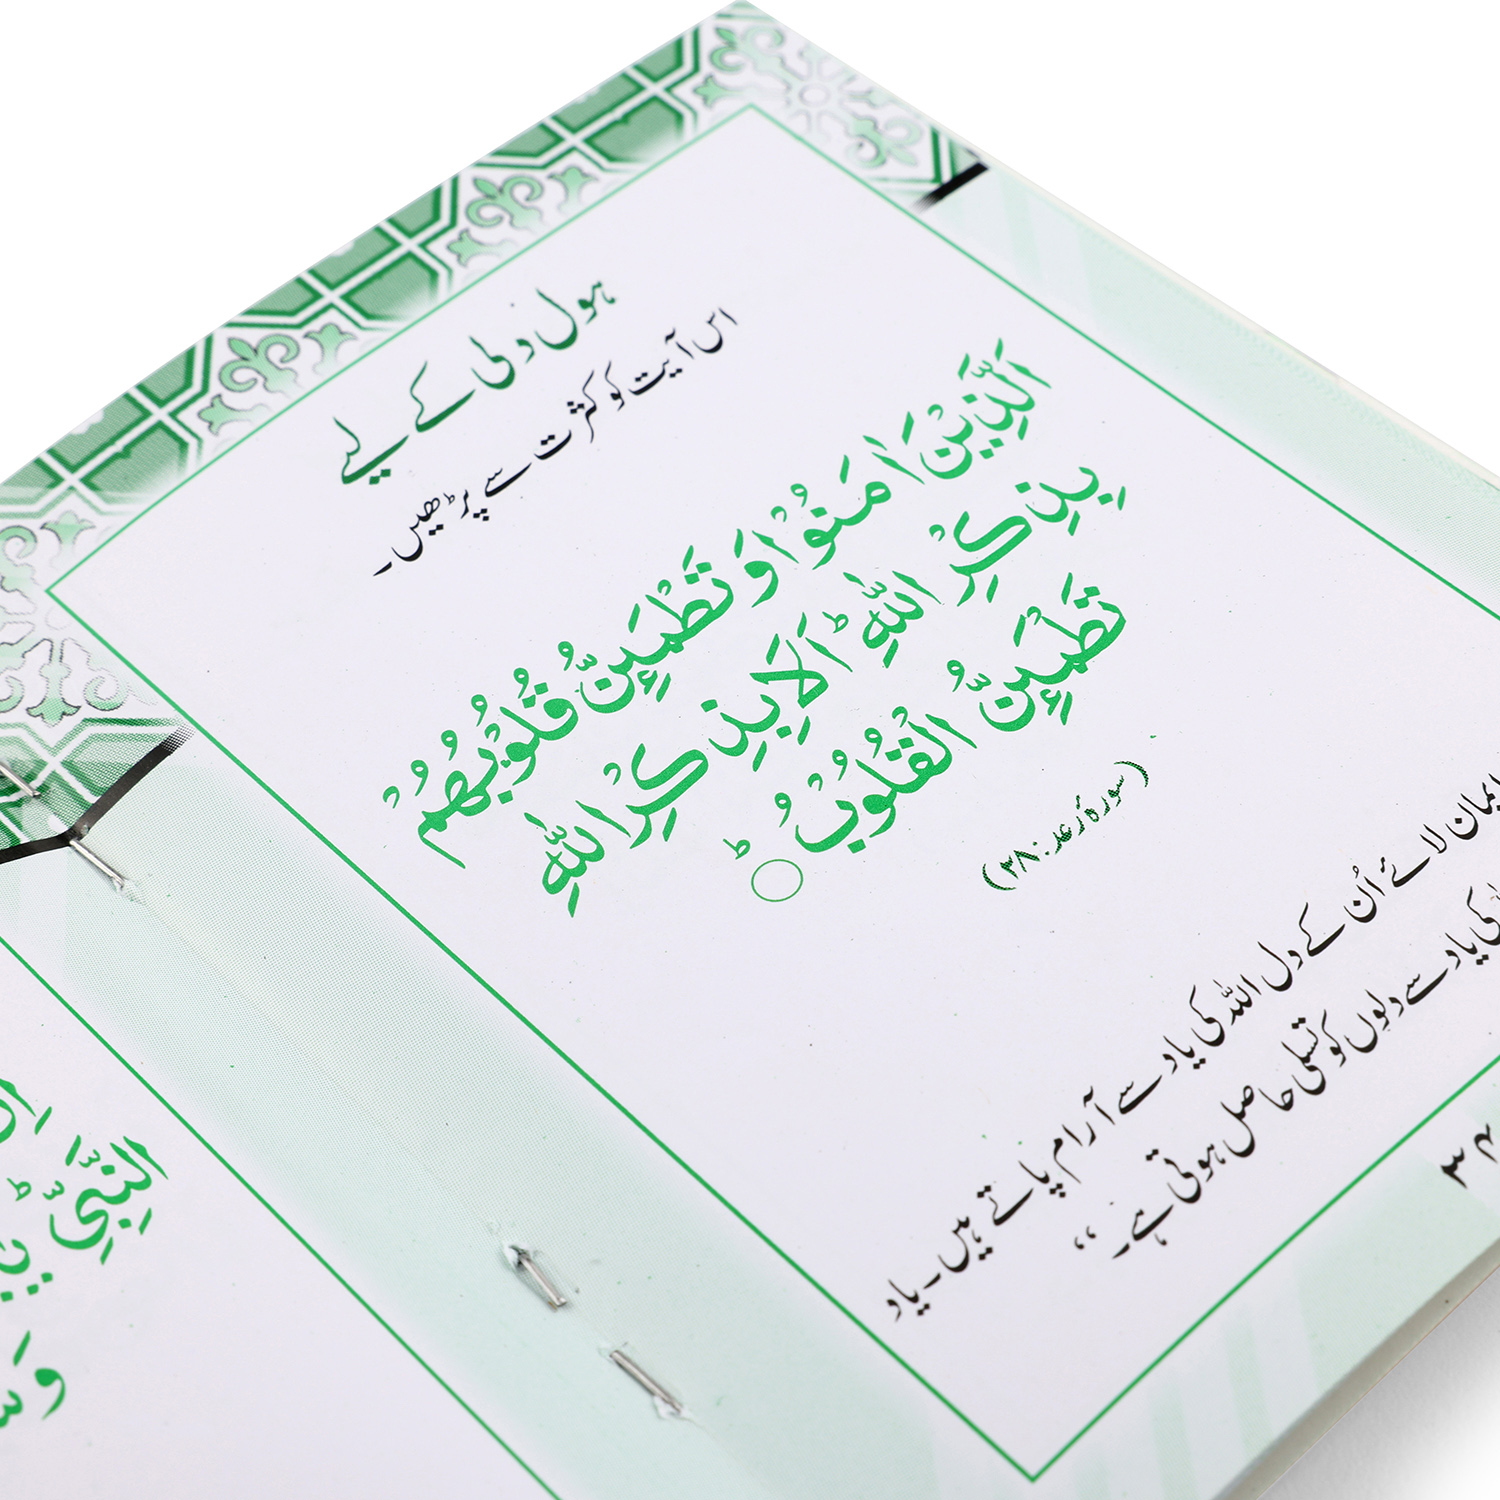 ہول دلی کے لیے
اس آیت کو کثرت سے پڑھیں۔
اَلَّذِیْنَ اٰمَنُوْا وَ تَطْمَىِٕنُّ قُلُوْبُهُمْ
بِذِكْرِ اللّٰهِؕ اَلَا بِذِكْرِ اللّٰهِ
تَطْمَىِٕنُّ الْقُلُوْبُؕ ○
(سورہ رعد: ۲۸)
ایمان لائے اُن کے دل اللہ کی یاد سے آرام پاتے ہیں۔ یاد
کی یاد سے دلوں کو تسلی حاصل ہوتی ہے۔‘‘
النَّبِیِّ